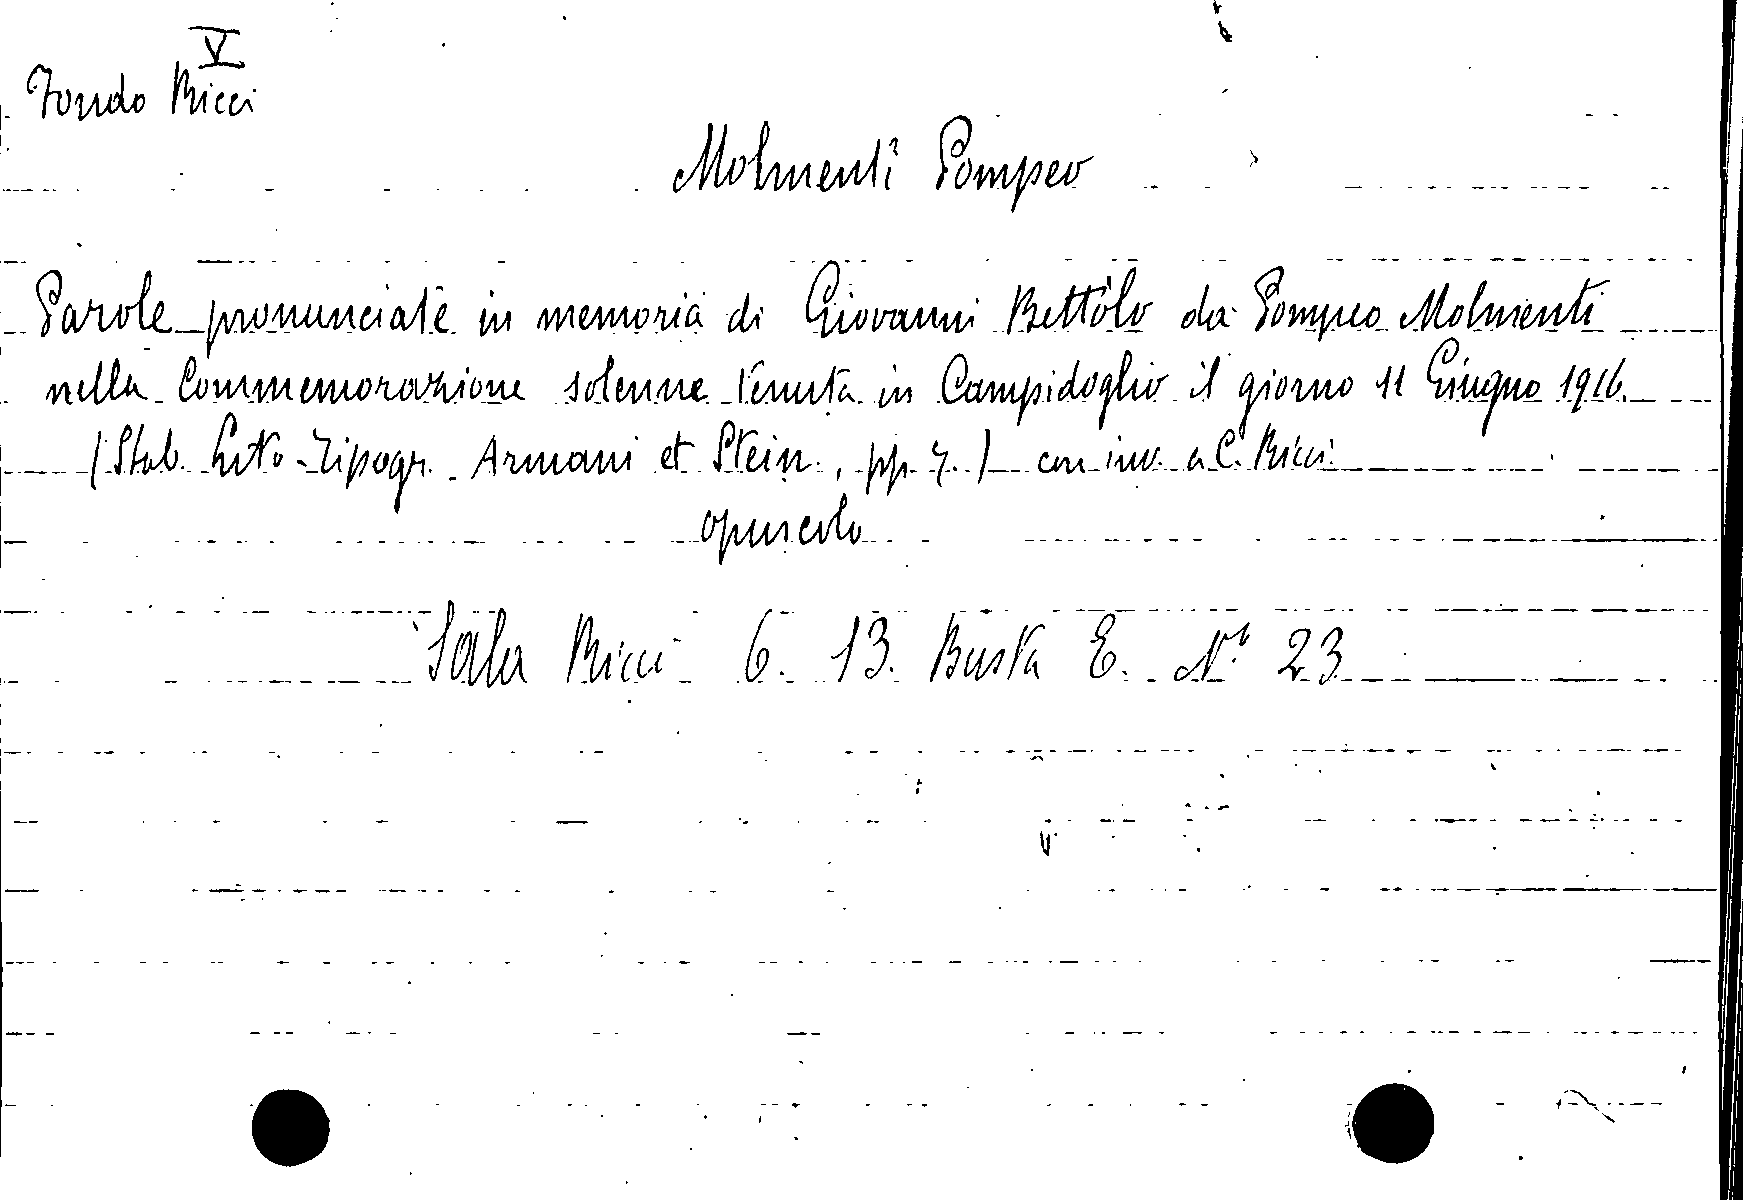 V
Fondo Ricci
Molmenti Pompeo
Parole pronunciate in memoria di Giovanni Bettòlo da Pompeo Molmenti
nella Commemorazione solenne tenuta in Campidoglio il giorno 11 Giugno 1916.
(Stab. Lito-Tipogr. Armani et Stein, pp. 7.) con inv. a C. Ricci.
opuscolo
Sala Ricci 6. 13. Busta E. N° 23